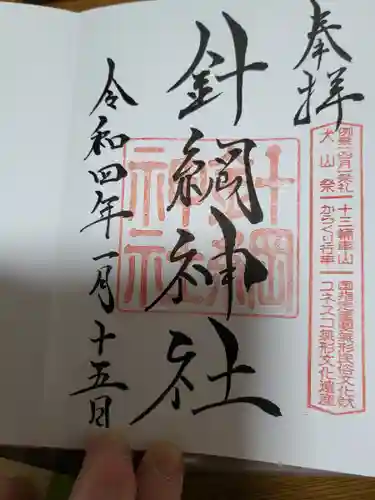 奉拝
針綱神社
令和四年一月十五日
針綱
神社
例祭 四月 祭礼
犬山祭
十三輌車山
からくり行事
国指定重要無形民俗文化財
ユネスコ無形文化遺産